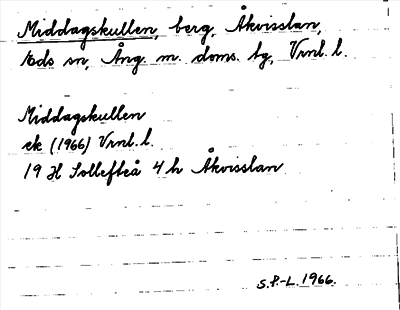 Middagskullen, berg, Åkvisslan,
Eds sn, Ång. m. doms. tg, Vrnl. l.
Middagskullen
ek (1966) Vrnl. l.
19 H Sollefteå 4 h Åkvisslan
S.P.-L. 1966.